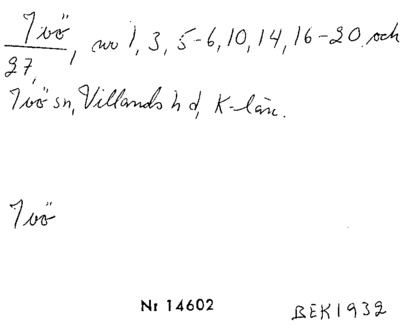 Ivö, nro 1, 3, 5-6, 10, 14, 16-20 och
27,
Ivö sn, Villands hd, K-län.
Ivö
Nr 14602
BEK1932